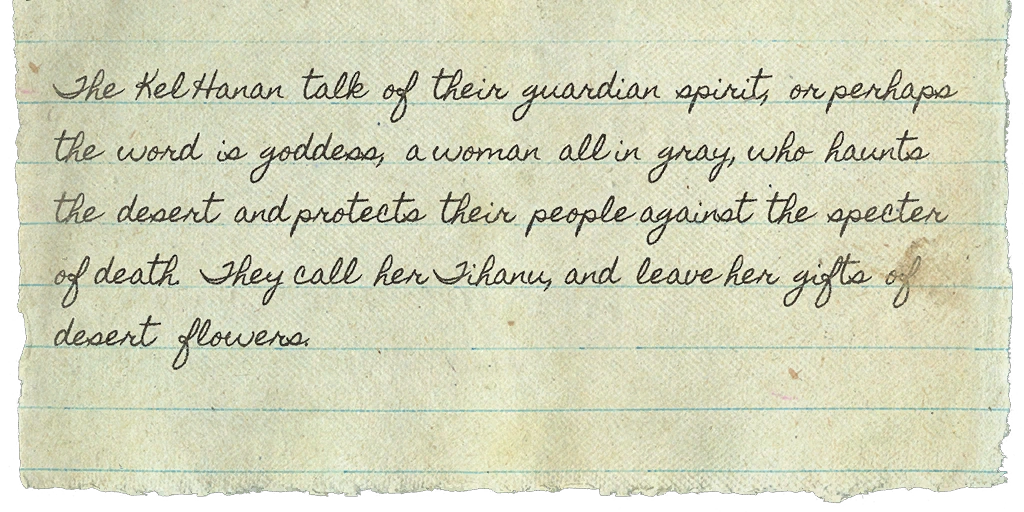 The Kel Hanan talk of their guardian spirit, or perhaps
the word is goddess, a woman all in gray, who haunts
the desert and protects their people against the specter
of death. They call her Tihanu, and leave her gifts of
desert flowers.